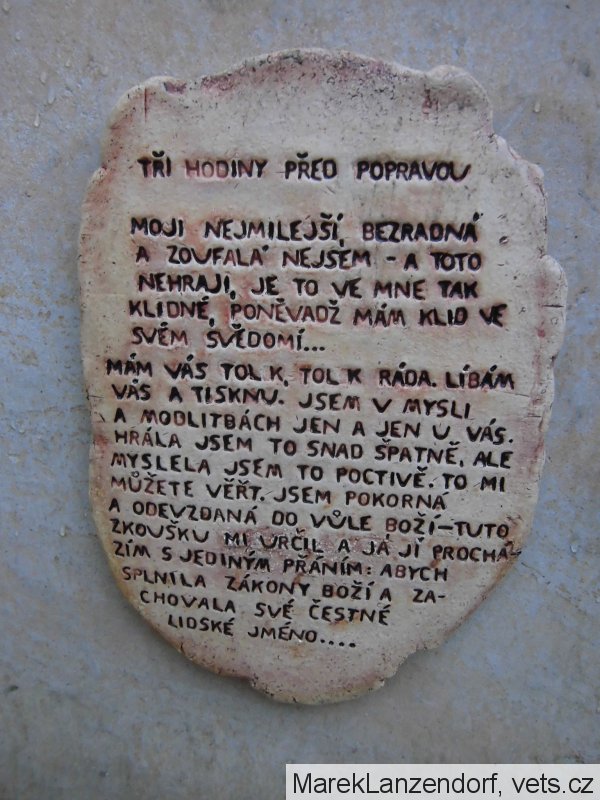 TŘI HODINY PŘED POPRAVOU
MOJI NEJMILEJŠÍ, BEZRADNÁ
A ZOUFALÁ NEJSEM - A TOTO
NEHRAJI, JE TO VE MNE TAK
KLIDNÉ, PONĚVADŽ MÁM KLID VE
SVÉM SVĚDOMÍ...
MÁM VÁS TOLIK, TOLIK RÁDA. LÍBÁM
VÁS A TISKNU. JSEM V MYSLI
A MODLITBÁCH JEN A JEN U VÁS.
HRÁLA JSEM TO SNAD ŠPATNĚ, ALE
MYSLELA JSEM TO POCTIVĚ. TO MI
MŮŽETE VĚŘT. JSEM POKORNÁ
A ODEVZDANÁ DO VŮLE BOŽÍ-TUTO
ZKOUŠKU MI URČIL A JÁ JÍ PROCHÁ-
ZÍM S JEDINÝM PŘÁNÍM: ABYCH
SPLNILA ZÁKONY BOŽÍ A ZA-
CHOVALA SVÉ ČESTNÉ
LIDSKÉ JMÉNO....
MarekLanzendorf, vets.cz